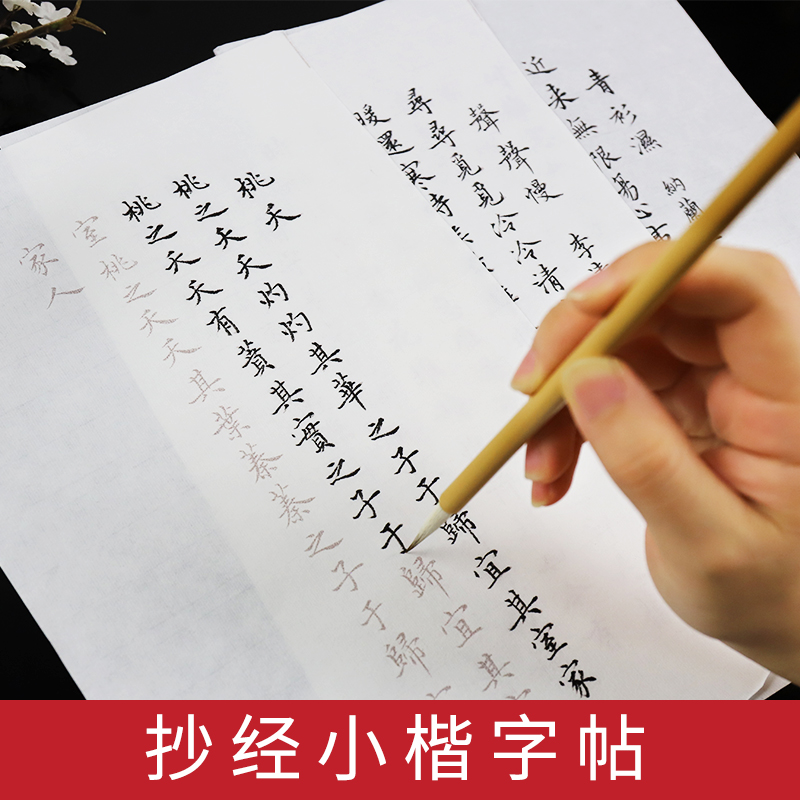 青衫濕 納蘭
近來無限傷心
聲聲慢 李
尋尋覓覓冷冷清
暖還寒
桃夭
桃之夭夭灼灼其華之子于歸宜其室家
桃之夭夭有蕡其實之子于歸宜其
室桃之夭夭其葉蓁蓁之子于歸
家人
抄经小楷字帖